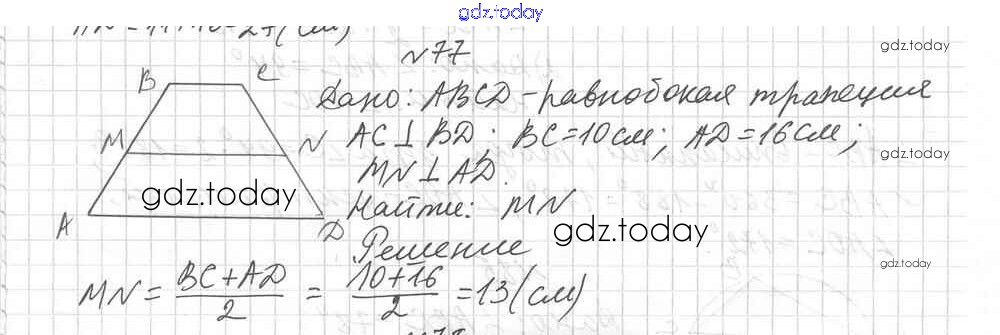 gdz.today
gdz.today
N77
B C
Дано: ABCD - равнобокая трапеция
M N AC ⊥ BD; BC = 10 см; AD = 16 см;
gdz.today
MN ⊥ AD.
gdz.today
A D
Найти: MN
gdz.today
Решение
gdz.today
MN = (BC + AD)/2 = (10 + 16)/2 = 13 (см)